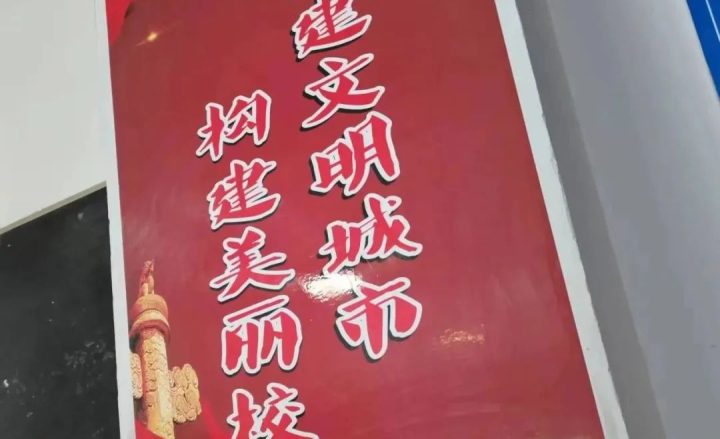 建文明城市
构建美丽校